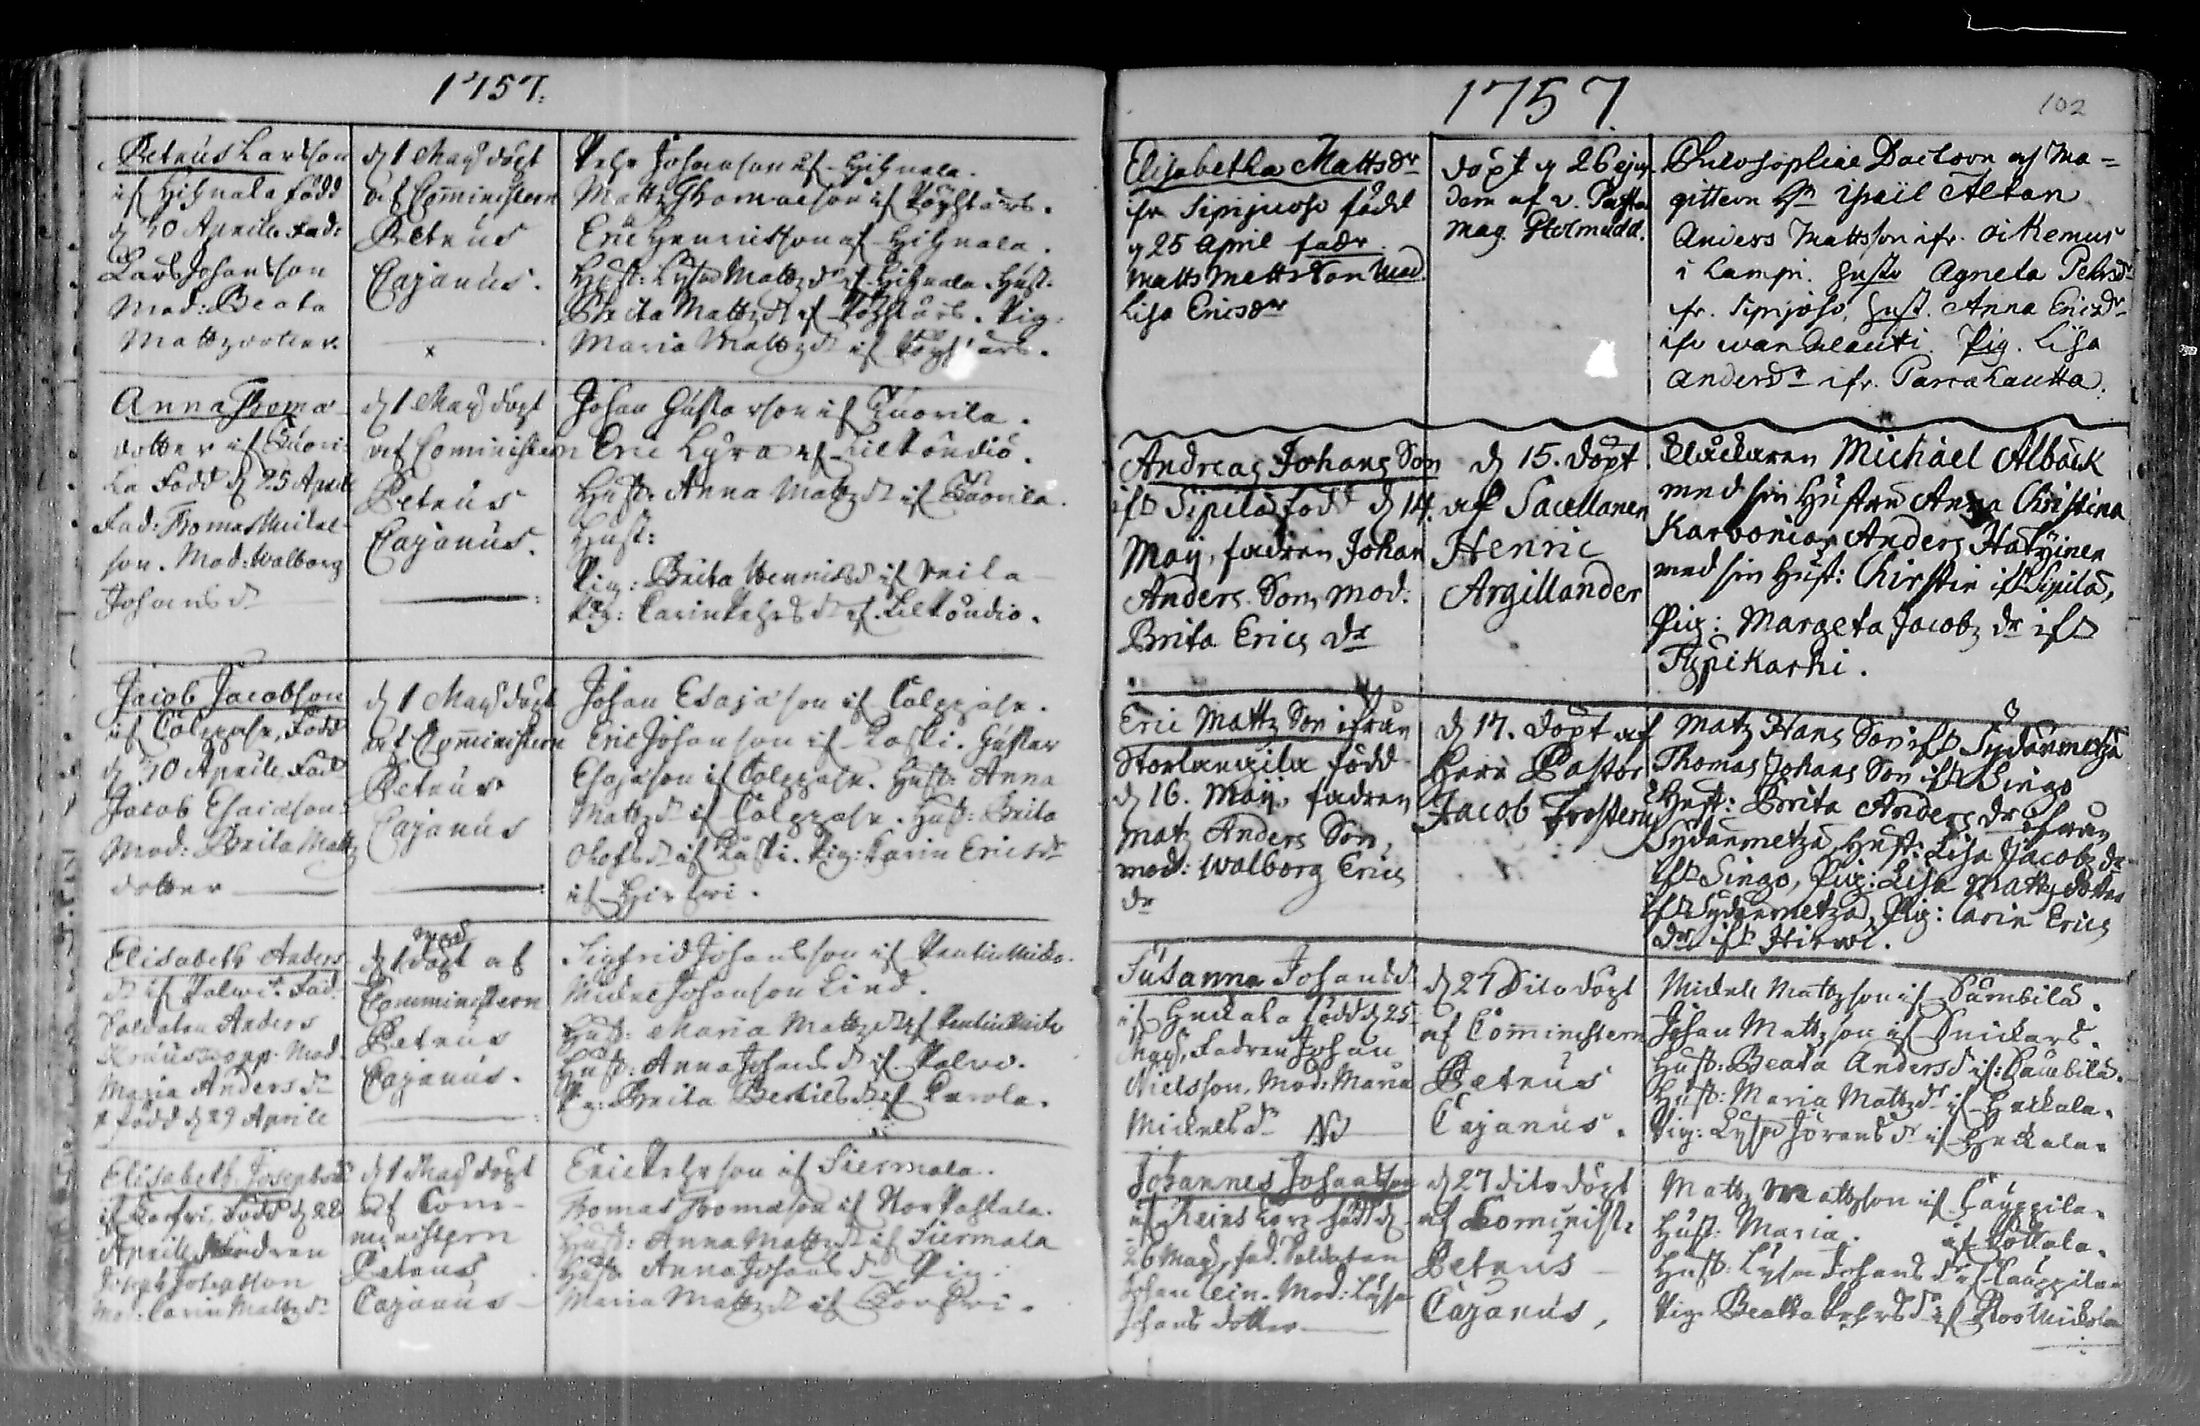 1757.
Petrus Larsson
if Hihnala född
d 30 Aprile. Fad:
Lars Johansson
Mod: Beata
Mattzdotter
d 1 Maij döpt
af Comministern
Petrus
Cajanus.
Pehr Johansson if Hihnala.
Matts Thomasson if
Eric Henricsson if Hihnala.
Hust: Lisa Mattzdr if Hihnala. Hust:
Brita Mattzdr if Pig:
Maria Mattzdr if
Anna Thoma
dotter if Kuori-
la Född d 25 Aprile
Fad: Thomas Mickel-
son. Mod: Walborg
Johansdr
d 1 Maij döpt
af Cominister
Petrus
Cajanus.
Johan Gustafson if Kuorila.
Eric Lyra if Lilköndiö.
Hust: Anna Mattzdr if Kuorila.
Hust:
Pig: Brita Henricsdr if
Pig: Carin Pehrsdr if Lilköndiö.
Jacob Jacobson
if Född
d 30 Aprile, Fad
Jacob Esaiæson
Mod: Brita Mattz
dotter
d 1 Maij döpt
af Comministern
Petrus
Cajanus
Johan Esajæson if
Eric Johanson if Laski. Gustav
Esajæson if Hust: Anna
Mattzdr if Hust: Brita
Olofsdr if Pig: Carin Ericsdr
if Hirfwi.
Elisabeth Anders
dr if Fad:
Soldaten Anders
Mod
Maria Andersdr
född d 29 Aprile
d 1 Maij döpt af
Comministern
Petrus
Cajanus.
Sigfrid Johansson if
Mickel Johanson Lind.
Hust: Maria Mattzdr if
Hust: Anna Johansdr if
Pig: Brita Bertilsdr if
Elisabeth Josephsdr
if Född d 28
Aprile, Fadren
Joseph Josephsson
Mod: Carin Mattzdr
d 1 Maij döpt
af Com-
ministern
Petrus
Cajanus
Eric Pehrson if Siermala.
Thomas Thomason if
Hust: Anna Mattzdr if Siermala
Hust: Anna Johansdr Pig:
Maria Mattzdr if
1757.
102
Elisabetha Mattsdr
ifr Sipinjuoso född
d 25 April fadr
Matts Mattsson Mod
Lisa Ericsdr
döpt d 26 ejus-
dem af v. Past
Mag. Polmodd.
Philosophiae Doctorn och Ma-
gistern Hr Israel Altan
Anders Mattsson ifr. Oikemus
i Lampis. Hustr Agneta Pehrsdr
ifr. Hust. Anna Ericsdr
ifr Pig. Lisa
Andersdr ifr. Parcalautta.
Andreas Johans Son
ifr Sipilä född d 14.
Maij, fadren Johan
Anders Son, Mod:
Brita Erics dr
d 15. döpt
af Sacellanen
Henric
Argillander
Klåckaren Michäel Albäck
med sin Hustru Anna Christina
Karvonia, Anders Hatjinen
med sin Hust: Christin ifr Sipilä,
Pig: Margeta Jacobs dr ifr
Typikarhi.
Eric Mattz Son ifrån
Storlaurila född
d 16. Maij, fadren
Matz Anders Son,
mod: Walborg Erics
dr
d 17. döpt af
Herr Pastor
Jacob Frosterus
Matz Hans Son ifr Sydänmetzä
Thomas Johans Son ifr Singo
Hust: Brita Anders dr ifrån
Sydänmetzä, Hust: Lisa Jacobs dr
ifr Singo, Pig: Lisa Mattz dotter
ifr Sydänmetzä, Pig: Carin Erics
dr ifr Hirvoi.
Susanna Johansdr
if Heckala född d 25
Maij, Fadren Johan
Nielsson, Mod: Maria
Mickelsdr
d 27 Dito döpt
af Comministern
Petrus
Cajanus.
Mickel Mattzson if Sämbilä.
Johan Mattzson if Snickars.
Hust: Beata Andersdr if Sämbilä.
Hust: Maria Mattzdr if Heckala.
Pig: Lisa Jöransdr if Heckala.
Johannes Johansson
if född d
26 Maij, fad. Soldaten
Johan Lein. Mod: Lisa
Johans dotter
d 27 dito döpt
af Cominist:
Petrus
Cajanus,
Mattz Mattzson if Cauppila.
Hust: Maria. if Pottala.
Hust: Lisa Johansdr if Cauppila
Pig: Beatta Pehrsdr if